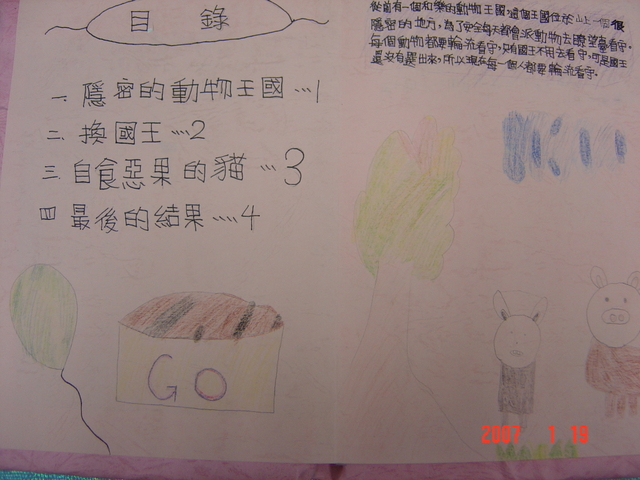 目錄
一、隱密的動物王國…1
二、換國王…2
三、自食惡果的貓…3
四、最後的結果…4
GO
從前有一個和樂的動物王國,這個王國位於山上一個很
隱密的地方,為了安全每天都會派動物去瞭望臺看守,
每個動物都要輪流看守,只有國王不用去看守,可是國王
還沒有選出來,所以現在每一個人都要輪流看守。
2007 1 19